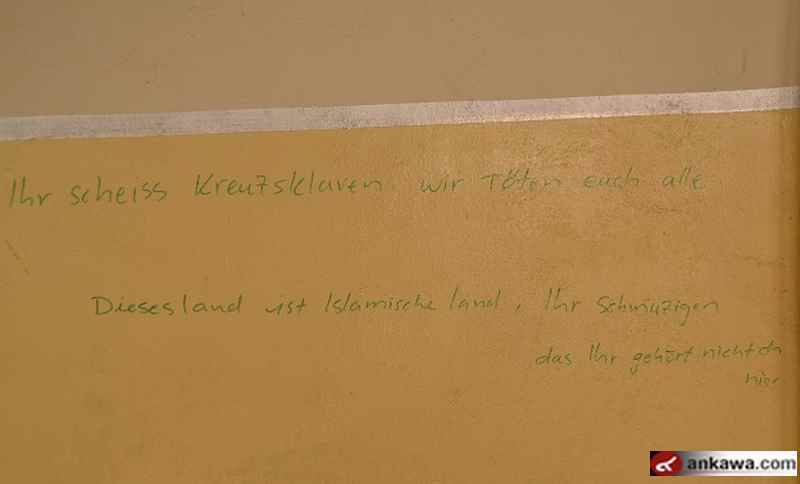 Ihr scheiss Kreuzsklaven. wir Töten euch alle
Dieses land ist Islamische land, Ihr Schmuzigen
das Ihr gehört nicht
hier
ankawa.com